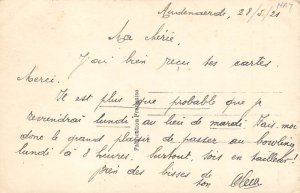 Audenaerde, 28/5/21
Ma Chérie,
J'ai bien reçu tes cartes.
Merci.
Il est plus que probable que je
reviendrai lundi au lieu de mardi. Fais-moi
donc le grand plaisir de passer au bowling
lundi à 8 heures. Surtout, sois en tailleur!
des bisses de
ton
Fabrication Française